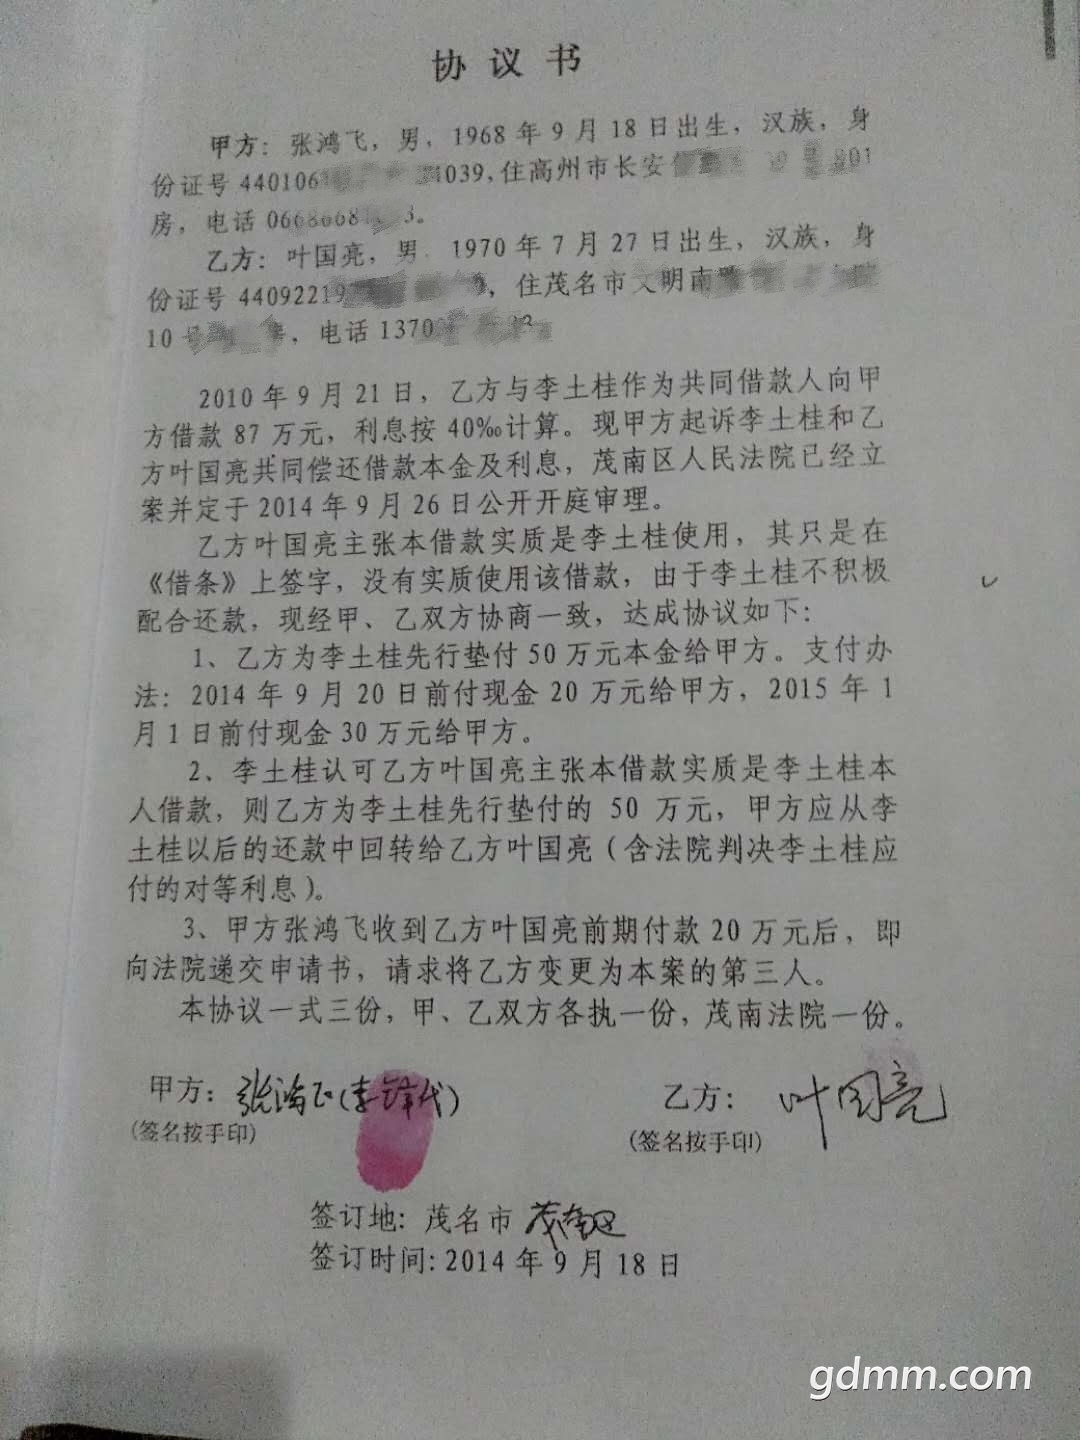 协议书
甲方：张鸿飞，男，1968年9月18日出生，汉族，身
份证号440106 4039,住高州市长安 号801
房，电话0668668 3。
乙方：叶国亮，男，1970年7月27日出生，汉族，身
份证号44092219 ，住茂名市文明南
10号 ，电话1370
2010年9月21日，乙方与李土桂作为共同借款人向甲
方借款87万元，利息按40‰计算。现甲方起诉李土桂和乙
方叶国亮共同偿还借款本金及利息，茂南区人民法院已经立
案并定于2014年9月26日公开开庭审理。
乙方叶国亮主张本借款实质是李土桂使用，其只是在
《借条》上签字，没有实质使用该借款，由于李土桂不积极
配合还款，现经甲、乙双方协商一致，达成协议如下：
1、乙方为李土桂先行垫付50万元本金给甲方。支付办
法：2014年9月20日前付现金20万元给甲方，2015年1
月1日前付现金30万元给甲方。
2、李土桂认可乙方叶国亮主张本借款实质是李土桂本
人借款，则乙方为李土桂先行垫付的50万元，甲方应从李
土桂以后的还款中回转给乙方叶国亮（含法院判决李土桂应
付的对等利息）。
3、甲方张鸿飞收到乙方叶国亮前期付款20万元后，即
向法院递交申请书，请求将乙方变更为本案的第三人。
本协议一式三份，甲、乙双方各执一份，茂南法院一份。
甲方：张鸿飞(李 代) 乙方：叶国亮
(签名按手印) (签名按手印)
签订地：茂名市茂南区
签订时间：2014年9月18日
gdmm.com